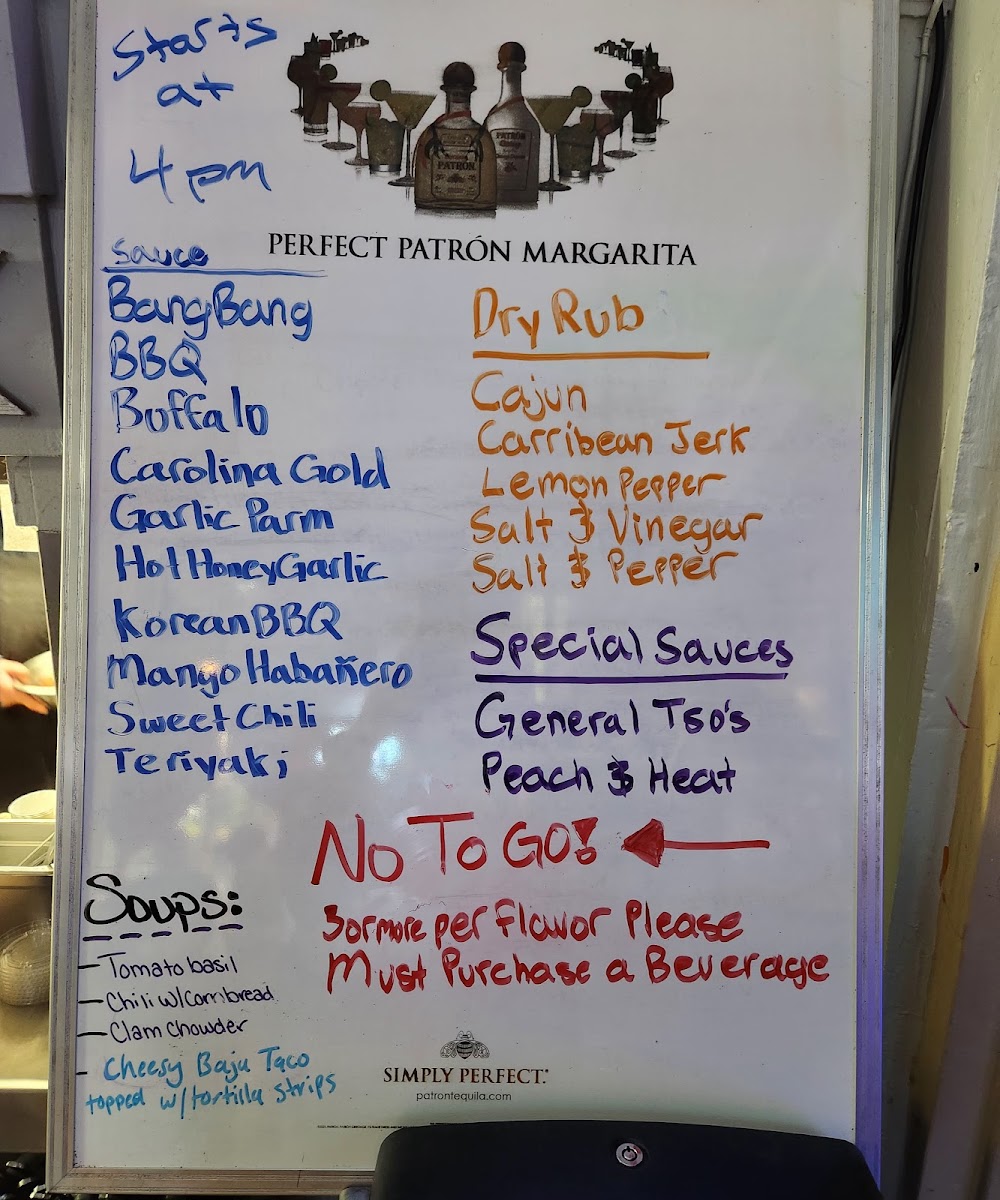 Starts
at
4 pm
PATRÓN
PATRÓN
PERFECT PATRÓN MARGARITA
Sauce
BangBang
BBQ
Buffalo
Carolina Gold
Garlic Parm
Hot Honey Garlic
Korean BBQ
Mango Habañero
Sweet Chili
Teriyaki
Dry Rub
Cajun
Carribean Jerk
Lemon Pepper
Salt & Vinegar
Salt & Pepper
Special Sauces
General Tso's
Peach & Heat
NO TO GO!
3 or more per flavor Please
Must Purchase a Beverage
Soups:
- Tomato basil
- Chili w/ Cornbread
- Clam Chowder
- Cheesy Baja Taco
topped w/ tortilla strips
SIMPLY PERFECT.
patrontequila.com